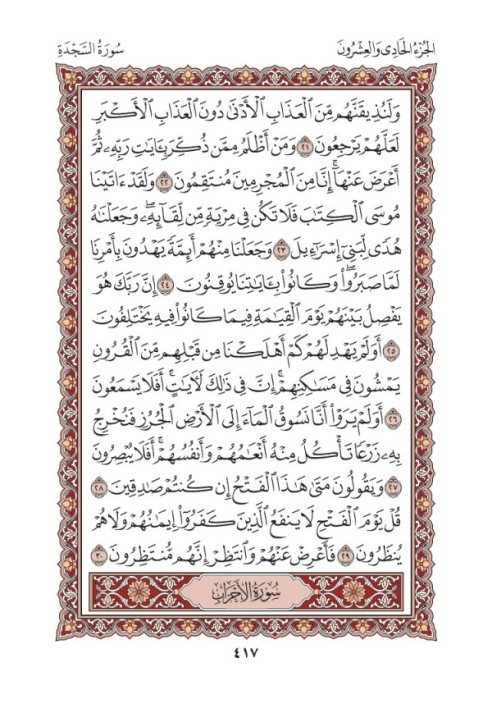 الجُزْءُ الحَادِي وَالعِشْرُونَ سُورَةُ السَّجْدَةِ
وَلَنُذِيقَنَّهُم مِّنَ ٱلْعَذَابِ ٱلْأَدْنَىٰ دُونَ ٱلْعَذَابِ ٱلْأَكْبَرِ
لَعَلَّهُمْ يَرْجِعُونَ ٢١ وَمَنْ أَظْلَمُ مِمَّن ذُكِّرَ بِـَٔايَـٰتِ رَبِّهِۦ ثُمَّ
أَعْرَضَ عَنْهَآ ۚ إِنَّا مِنَ ٱلْمُجْرِمِينَ مُنتَقِمُونَ ٢٢ وَلَقَدْ ءَاتَيْنَا
مُوسَى ٱلْكِتَـٰبَ فَلَا تَكُن فِى مِرْيَةٍ مِّن لِّقَآئِهِۦ ۖ وَجَعَلْنَـٰهُ
هُدًى لِّبَنِىٓ إِسْرَٰٓءِيلَ ٢٣ وَجَعَلْنَا مِنْهُمْ أَئِمَّةً يَهْدُونَ بِأَمْرِنَا
لَمَّا صَبَرُوا۟ ۖ وَكَانُوا۟ بِـَٔايَـٰتِنَا يُوقِنُونَ ٢٤ إِنَّ رَبَّكَ هُوَ
يَفْصِلُ بَيْنَهُمْ يَوْمَ ٱلْقِيَـٰمَةِ فِيمَا كَانُوا۟ فِيهِ يَخْتَلِفُونَ
٢٥ أَوَلَمْ يَهْدِ لَهُمْ كَمْ أَهْلَكْنَا مِن قَبْلِهِم مِّنَ ٱلْقُرُونِ
يَمْشُونَ فِى مَسَـٰكِنِهِمْ ۚ إِنَّ فِى ذَٰلِكَ لَـَٔايَـٰتٍ ۖ أَفَلَا يَسْمَعُونَ
٢٦ أَوَلَمْ يَرَوْا۟ أَنَّا نَسُوقُ ٱلْمَآءَ إِلَى ٱلْأَرْضِ ٱلْجُرُزِ فَنُخْرِجُ
بِهِۦ زَرْعًا تَأْكُلُ مِنْهُ أَنْعَـٰمُهُمْ وَأَنفُسُهُمْ ۖ أَفَلَا يُبْصِرُونَ
٢٧ وَيَقُولُونَ مَتَىٰ هَـٰذَا ٱلْفَتْحُ إِن كُنتُمْ صَـٰدِقِينَ ٢٨
قُلْ يَوْمَ ٱلْفَتْحِ لَا يَنفَعُ ٱلَّذِينَ كَفَرُوٓا۟ إِيمَـٰنُهُمْ وَلَا هُمْ
يُنظَرُونَ ٢٩ فَأَعْرِضْ عَنْهُمْ وَٱنتَظِرْ إِنَّهُم مُّنتَظِرُونَ ٣٠
سُورَةُ الأَحْزَابِ
٤١٧